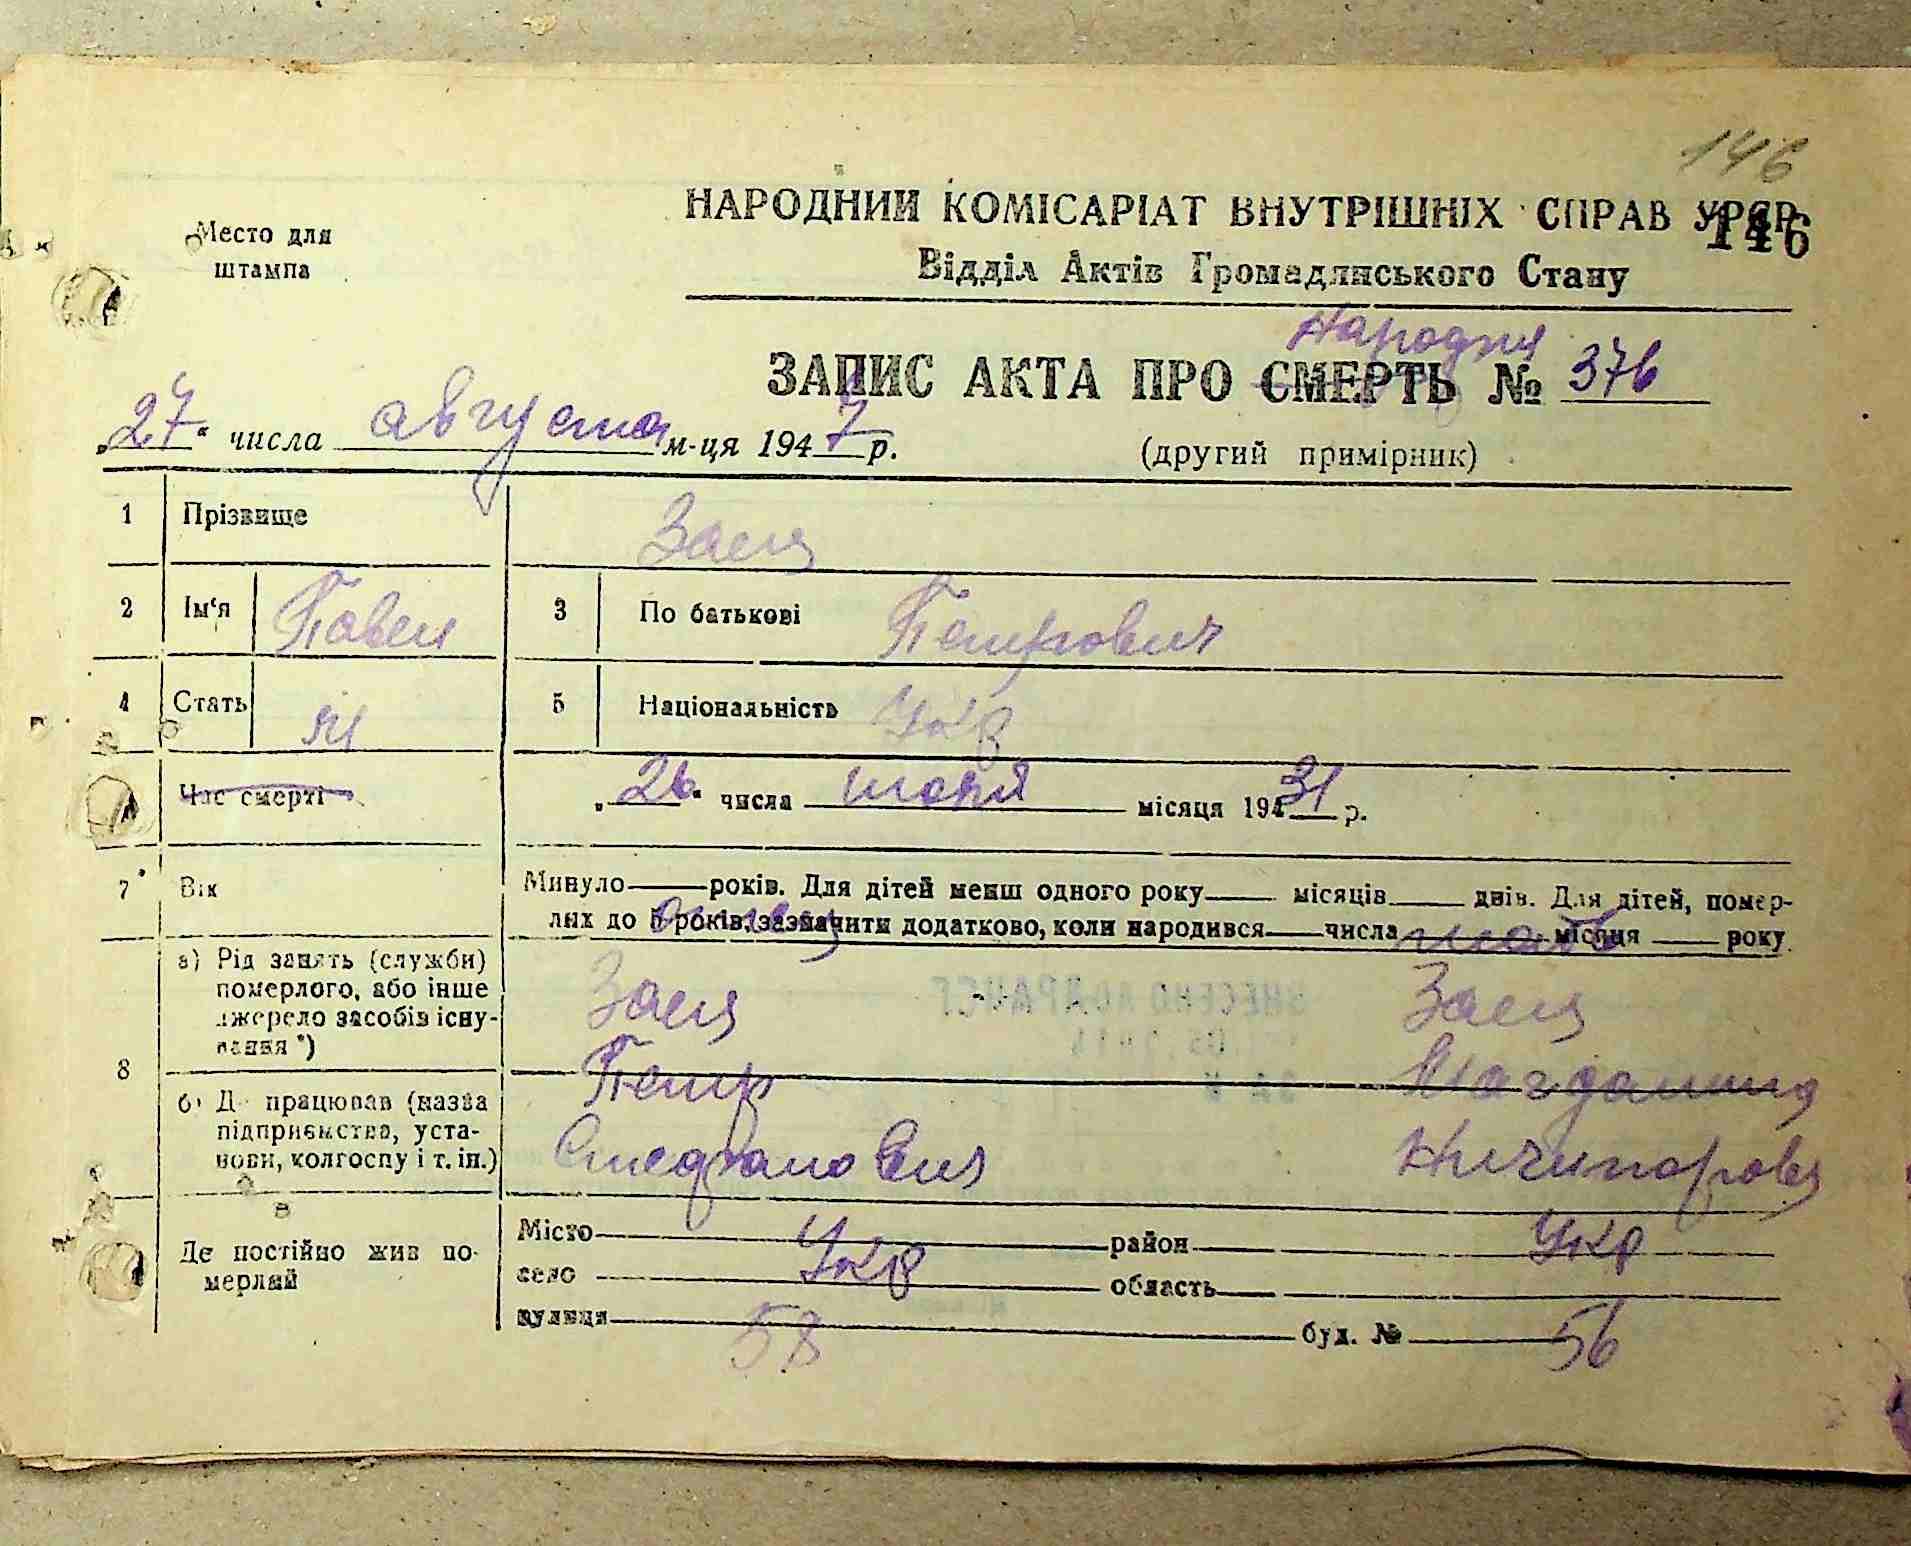 146
НАРОДНИЙ КОМІСАРІАТ ВНУТРІШНІХ СПРАВ УРСР
146
Место для
штампа
Відділ Актів Громадянського Стану
Народня
ЗАПИС АКТА ПРО СМЕРТЬ № 376
„27“ числа августа м-ця 1947 р.
(другий примірник)
1 Прізвище Заец
2 Ім'я Павел 3 По батькові Петрович
4 Стать М 5 Національність Укр
Час смерті „26“ числа июля місяця 19431 р.
7 Вік Минуло років. Для дітей менш одного року місяців днів. Для дітей, помер-
лих до 5 років, зазначити додатково, коли народився числа місяця року
отец мать
8 а) Рід занять (служби)
померлого, або інше
джерело засобів існу-
вання *)
Заец Заец
Петр Магдалина
б) Де працював (назва
підприємства, уста-
нови, колгоспу і т. ін.)
Стефанович Ничипоровна
Де постійно жив по-
мерлий
Місто район
Укр Укр
село область
вулиця буд. №
58 56